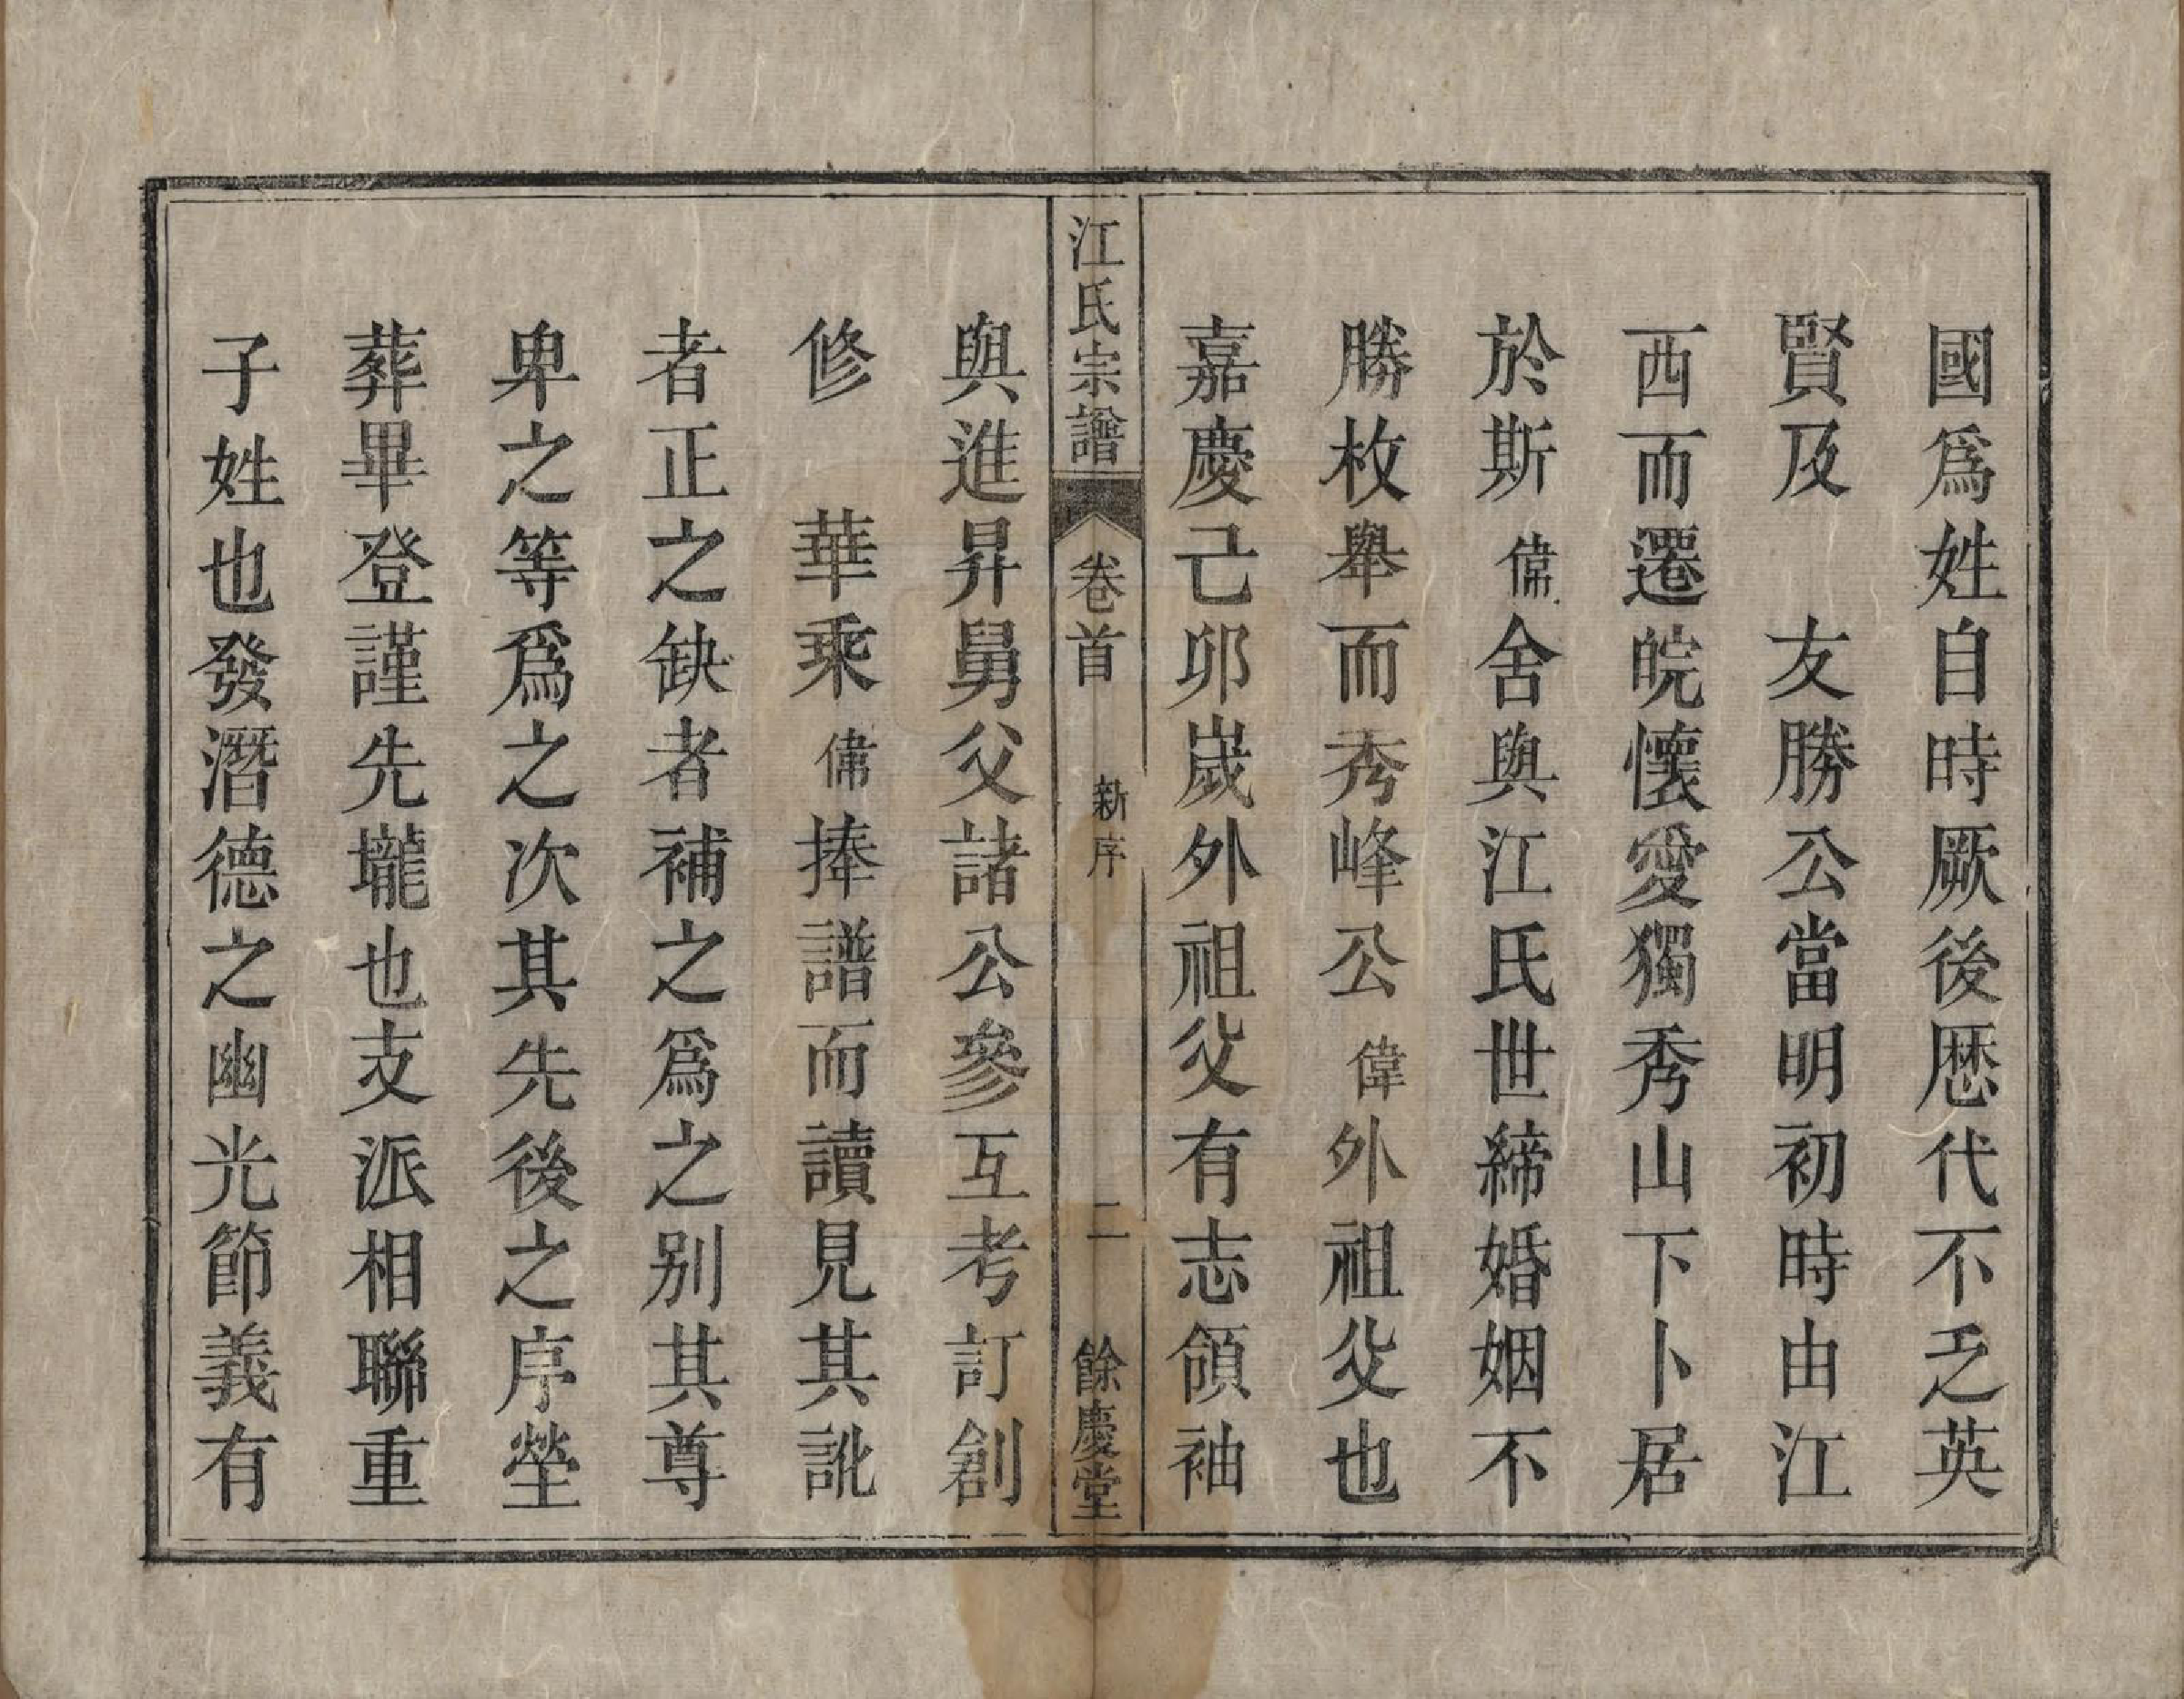 國爲姓自時厥後厯代不乏英
賢及　友勝公當明初時由江
西而遷皖懷愛獨秀山下卜居
於斯偉舍與江氏世締婚姻不
勝枚舉而秀峰公偉外祖父也
嘉慶己卯歲外祖父有志領袖
江氏宗譜　卷首　新序　二　餘慶堂
與進昇舅父諸公參互考訂創
修　華乘偉捧譜而讀見其訛
者正之缺者補之爲之别其尊
卑之等爲之次其先後之序塋
葬畢登謹先壠也支派相聯重
子姓也發潛德之幽光節義有